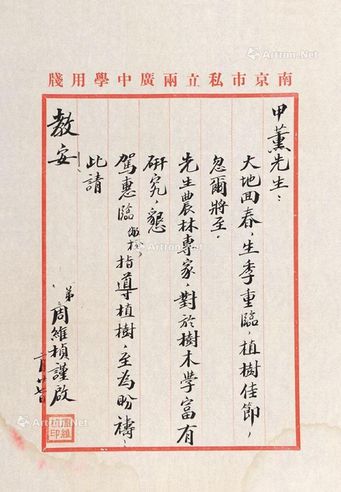 南京市私立兩廣中學用牋
甲薰先生：
大地回春，生季重臨，植樹佳節，
忽爾將至，
先生農林專家，對於樹木學富有
研究，懇
駕惠臨敝校，指導植樹，至為盼禱：
此請
教安
弟
周維楨謹啟